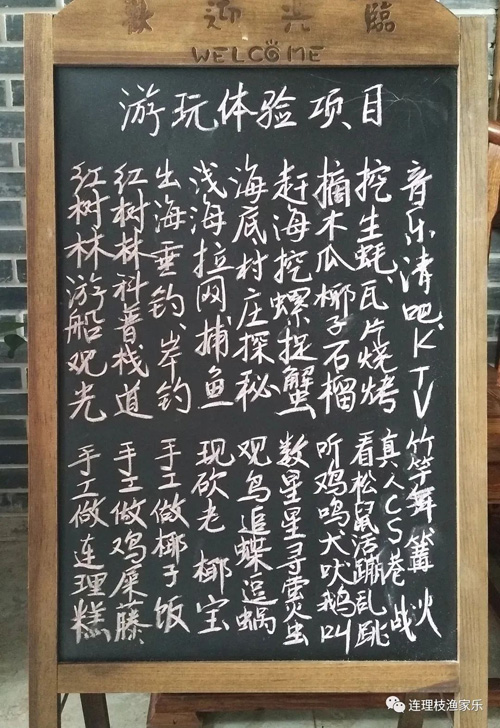 歡迎光臨
WELCOME
游玩体验项目
音乐清吧、KTV
挖生蚝、瓦片烧烤
摘木瓜椰子石榴
赶海挖螺捉蟹
海底村庄探秘
浅海拉网捕鱼
出海垂钓、岸钓
红树林科普栈道
红树林游船观光
竹竿舞篝火
真人CS巷战
看松鼠活蹦乱跳
听鸡鸣犬吠鹅叫
数星星寻萤火虫
观鸟追蝶逗蜗
现砍老椰宝
手工做椰子饭
手工做鸡屎藤
手工做连理糕
连理枝渔家乐